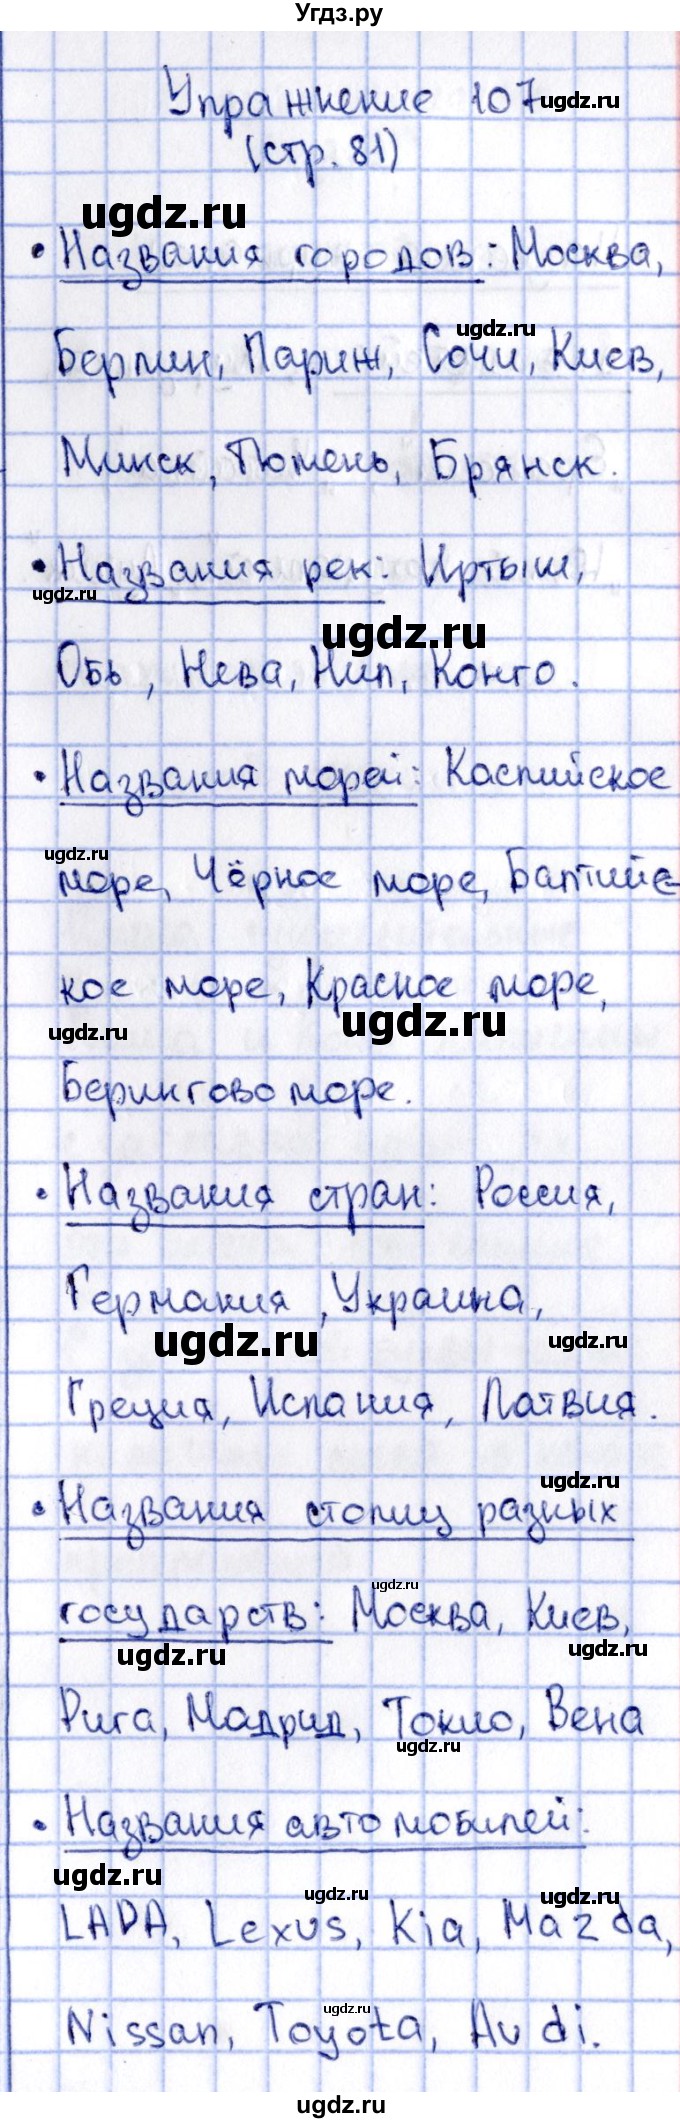 Угдз.ру
Упражнение 107
ugdz.ru
(стр. 81)
ugdz.ru
• Названия городов: Москва,
ugdz.ru
Берлин, Париж, Сочи, Киев,
Минск, Тюмень, Брянск.
• Названия рек: Иртыш,
ugdz.ru
ugdz.ru
Обь, Нева, Нил, Конго.
• Названия морей: Каспийское
ugdz.ru
море, Чёрное море, Балтийс-
кое море, Красное море,
ugdz.ru
ugdz.ru
Берингово море.
• Названия стран: Россия,
Германия, Украина,
ugdz.ru
ugdz.ru
Греция, Испания, Латвия.
ugdz.ru
• Названия столиц разных
ugdz.ru
государств: Москва, Киев,
ugdz.ru
ugdz.ru
Рига, Мадрид, Токио, Вена
ugdz.ru
• Названия автомобилей:
ugdz.ru
ugdz.ru
ugdz.ru
LADA, Lexus, Kia, Mazda,
ugdz.ru
Nissan, Toyota, Audi.
ugdz.ru